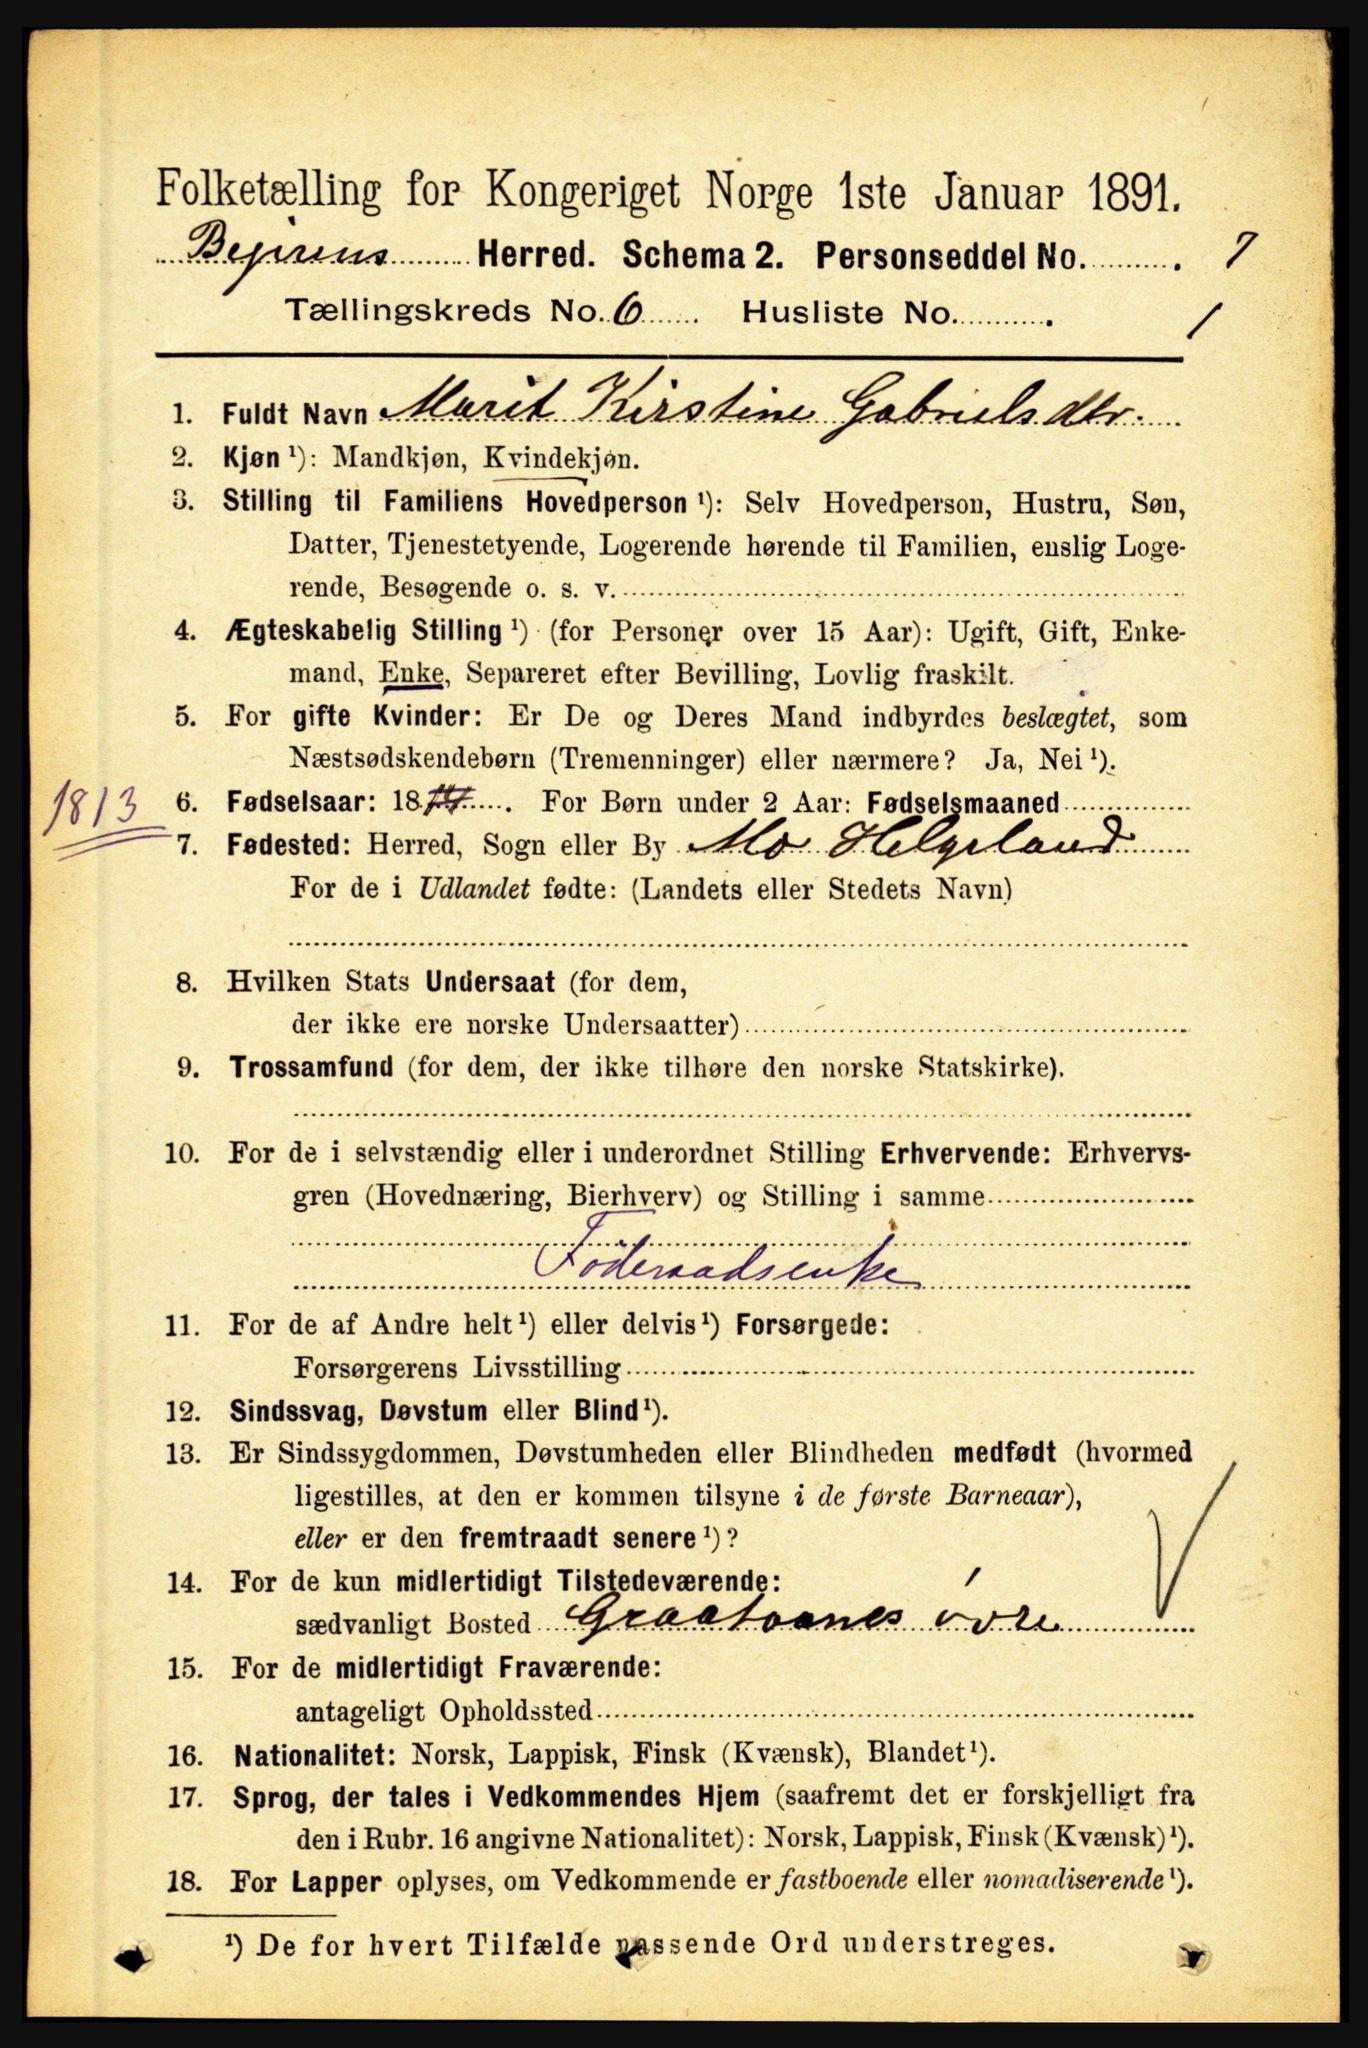 Folketælling for Kongeriget Norge 1ste Januar 1891.
Bejerens Herred. Schema 2. Personseddel No. . 7
Tællingskreds No. 6 Husliste No. . 1
1. Fuldt Navn Marit Kirstine Gabrielsdtr.
2. Kjøn ¹): Mandkjøn, Kvindekjøn.
3. Stilling til Familiens Hovedperson ¹): Selv Hovedperson, Hustru, Søn,
Datter, Tjenestetyende, Logerende hørende til Familien, enslig Loge-
rende, Besøgende o. s. v.
4. Ægteskabelig Stilling ¹) (for Personer over 15 Aar): Ugift, Gift, Enke-
mand, Enke, Separeret efter Bevilling, Lovlig fraskilt.
5. For gifte Kvinder: Er De og Deres Mand indbyrdes beslægtet, som
Næstsødskendebørn (Tremenninger) eller nærmere? Ja, Nei ¹).
1813 6. Fødselsaar: 18 . For Børn under 2 Aar: Fødselsmaaned
7. Fødested: Herred, Sogn eller By Mo Helgeland
For de i Udlandet fødte: (Landets eller Stedets Navn)
8. Hvilken Stats Undersaat (for dem,
der ikke ere norske Undersaatter)
9. Trossamfund (for dem, der ikke tilhøre den norske Statskirke).
10. For de i selvstændig eller i underordnet Stilling Erhvervende: Erhvervs-
gren (Hovednæring, Bierhverv) og Stilling i samme
Føderaadsenke
11. For de af Andre helt ¹) eller delvis ¹) Forsørgede:
Forsørgerens Livsstilling
12. Sindssvag, Døvstum eller Blind ¹).
13. Er Sindssygdommen, Døvstumheden eller Blindheden medfødt (hvormed
ligestilles, at den er kommen tilsyne i de første Barneaar),
eller er den fremtraadt senere ¹)?
14. For de kun midlertidigt Tilstedeværende:
sædvanligt Bosted Graataanes övre
15. For de midlertidigt Fraværende:
antageligt Opholdssted
16. Nationalitet: Norsk, Lappisk, Finsk (Kvænsk), Blandet ¹).
17. Sprog, der tales i Vedkommendes Hjem (saafremt det er forskjelligt fra
den i Rubr. 16 angivne Nationalitet): Norsk, Lappisk, Finsk (Kvænsk) ¹).
18. For Lapper oplyses, om Vedkommende er fastboende eller nomadiserende ¹).
¹) De for hvert Tilfælde passende Ord understreges.